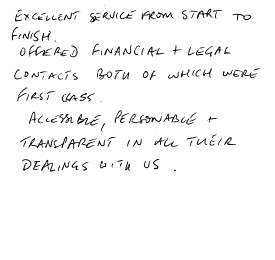 EXCELLENT SERVICE FROM START TO
FINISH.
OFFERED FINANCIAL + LEGAL
CONTACTS BOTH OF WHICH WERE
FIRST CLASS.
ACCESSIBLE, PERSONABLE +
TRANSPARENT IN ALL THEIR
DEALINGS WITH US.